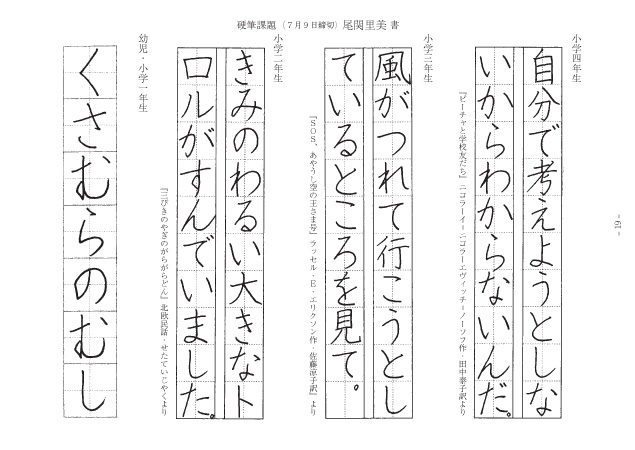 硬筆課題（7月9日締切）尾関里美 書
小学四年生
自分で考えようとしな
いからわからないんだ。
『ビーチャと学校友だち』ニコラーイ＝ニコラーエヴィッチ＝ノーソフ作・田中泰子訳より
小学三年生
風がつれて行こうとし
ているところを見て。
『SOS、あやうし空の王さま号』ラッセル・E・エリクソン作・佐藤涼子訳より
小学二年生
きみのわるい大きなト
ロルがすんでいました。
『三びきのやぎのがらがらどん』北欧民話・せたていじやくより
幼児・小学一年生
くさむらのむし
- 19 -